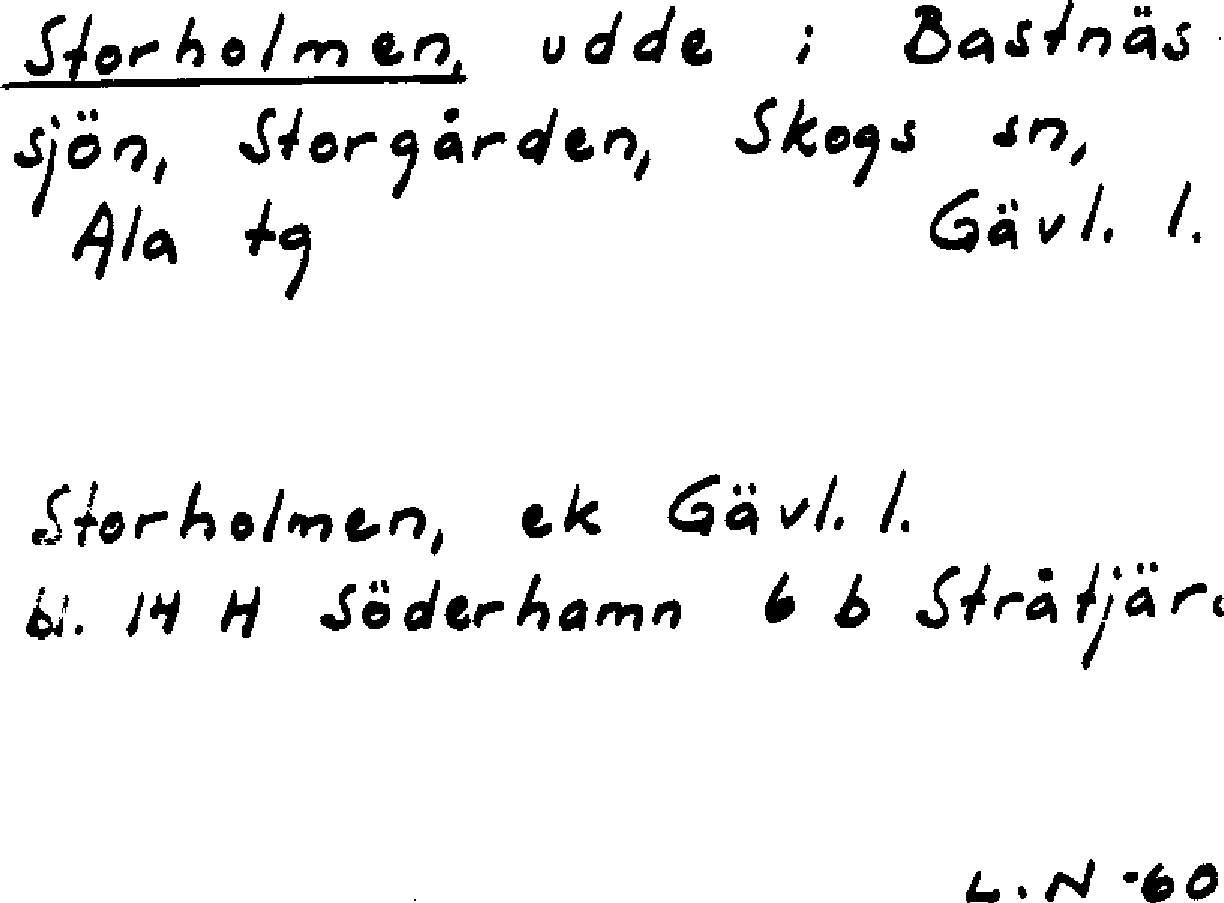 Storholmen, udde i Bastnäs-
sjön, Storgården, Skogs sn,
Ala tg Gävl. l.
Storholmen, ek Gävl. l.
bl. 14 H Söderhamn 6 b
L. N -60